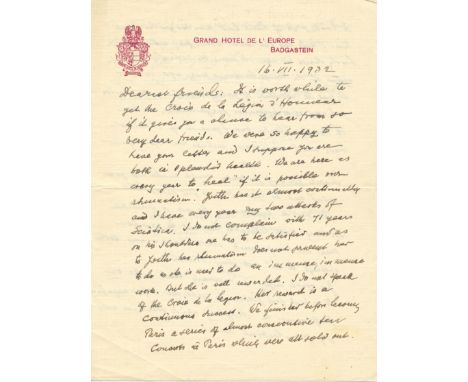 GRAND HOTEL DE L' EUROPE
BADGASTEIN
16. VII. 1932
Dearest friends: It is worth while to
get the Croix de la Légion d'Honneur
if it gives you a chance to hear from so
very dear friends. We were so happy to
have your letter and I suppose you are
both in splendid health. We are here as
every year to "heal" if it is possible our
rheumatism. has it almost
and I have every year my two attacks of
Sciatica. I do not complain with 71 years
on his shoulders one has to be satisfied and as
to her rheumatism does not prevent her
to do as she is used to do an immense, immense
work. But she is well rewarded. I do not speak
of the Croix de la legion. Her reward is a
continuous success. We finished before leaving
Paris a series of almost consecutive ten
Concerts in Paris which were all sold out.